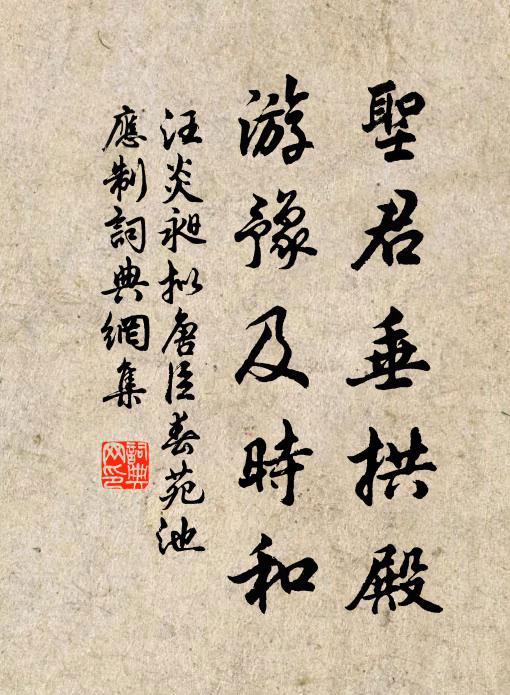 聖君垂拱殿
游豫及時和
汪炎昶拟唐臣春苑池
應制詞典網集
詞典网印